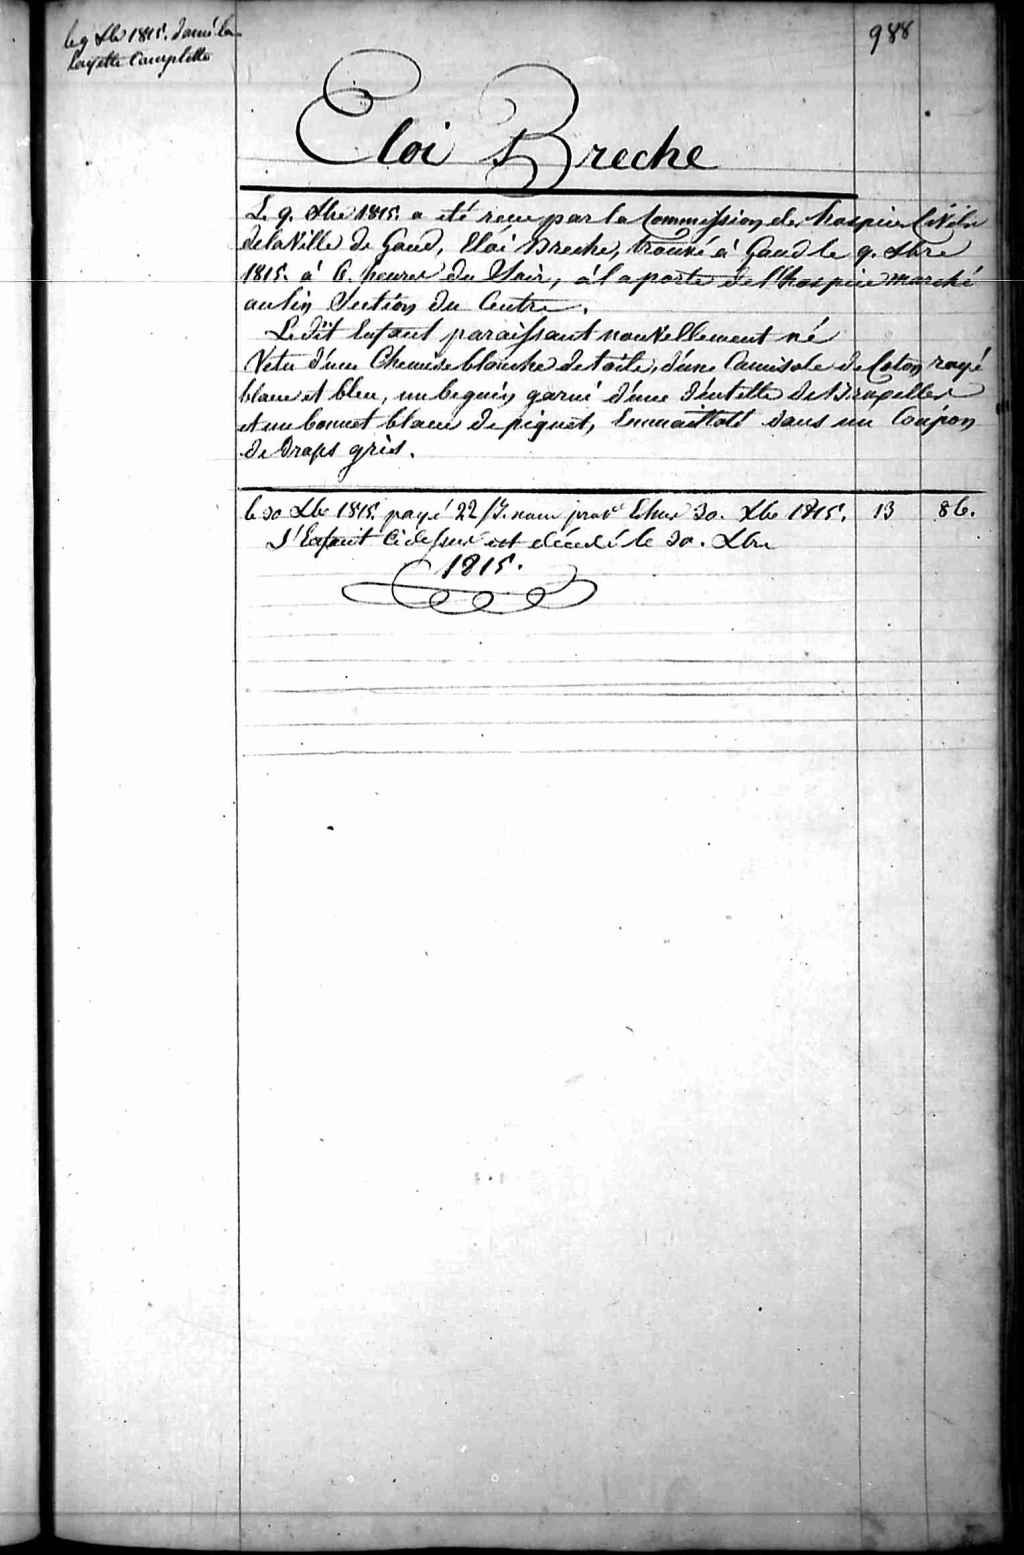 le 9 Xbr 1815. donné la
Layette Complette
988
Eloi Breche
Le 9. Xbre 1815. a été reçu par la Commission des hospices Civils
de la Ville de Gand, Eloi Breche, trouvé à Gand le 9. Xbre
1815. à 6. heures du Soir, à la porte de l'hospice marché
au lin Section du Centre.
Le dit Enfant paraissant nouvellement né
Vetu d'une Chemise blanche de toile, d'une Camisole de Coton rayé
blanc et bleu, un beguin garni d'une dentelle de Bruxelles
et un bonnet blanc de piquet, Emmailloté dans un Coupon
de Draps gris.
le 30 Xbr 1815. payé 22 Echus 30. Xbr 1815. 13 86.
L'Enfant Cidessus est décédé le 30. Xbre
1815.